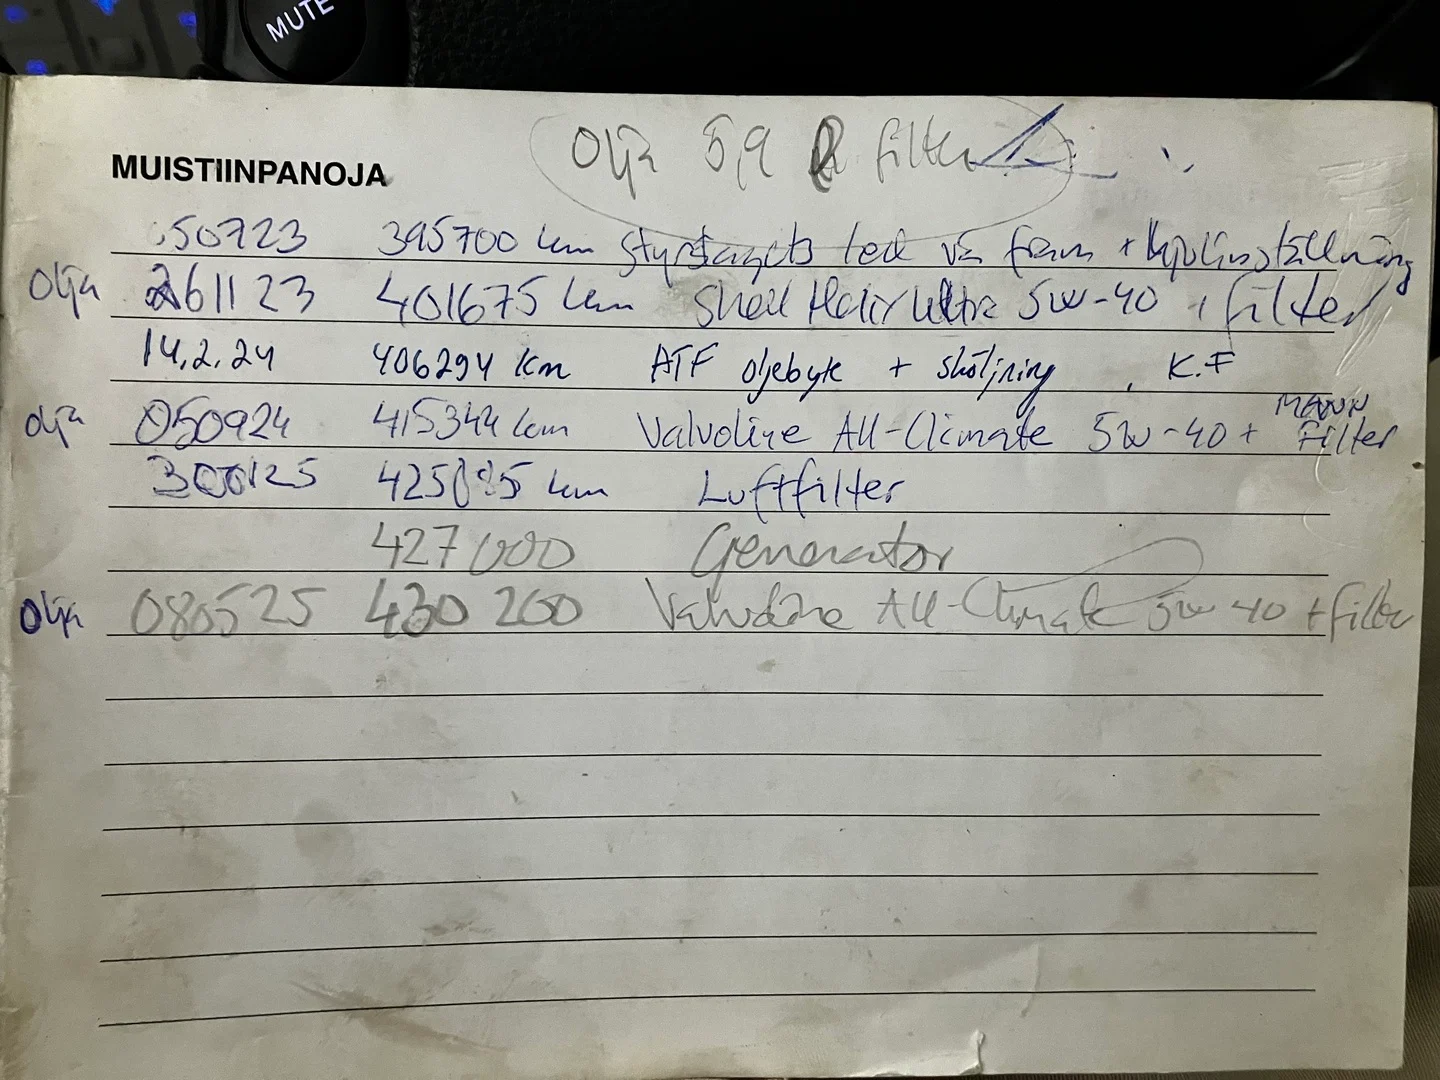 MUTE
Olja 5,9 l filter
MUISTIINPANOJA
050723 395700 km Styrstagets led vä fram + hjulinställning
Olja 261123 401675 km Shell Helix Ultra 5w-40 + filter
14.2.24 406294 km ATF oljebyte + sköljning K.F
olja 050924 415344 km Valvoline All-Climate 5w-40 + MANN filter
km Luftfilter
427000 Generator
Olja 080525 430 200 Valvoline All-Climate 5w 40 + filter